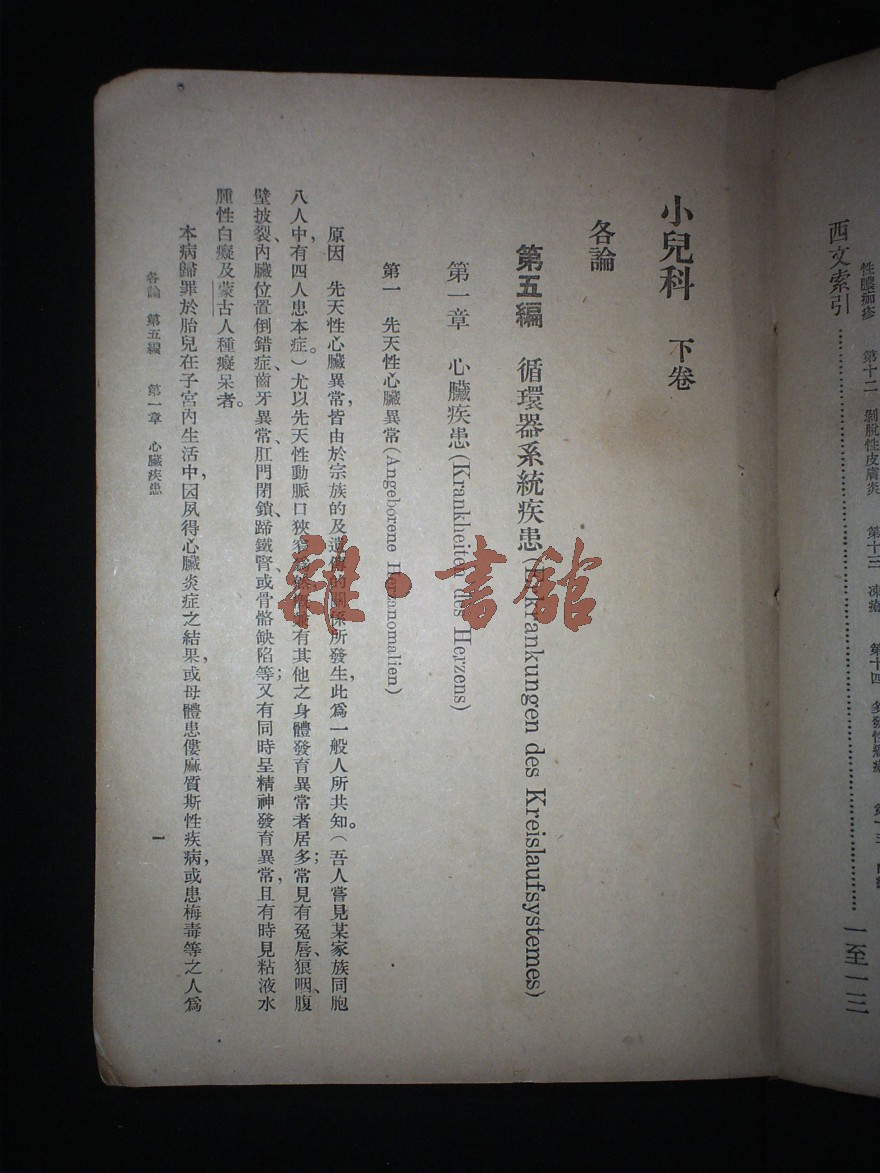 西文索引……………………………一至一三
小兒科 下卷
各論
第五編 循環器系統疾患(Erkrankungen des Kreislaufsystemes)
第一章 心臟疾患(Krankheiten des Herzens)
第一 先天性心臟異常(Angeborene Herzanomalien)
原因 先天性心臟異常,皆由於宗族的及遺傳的關係所發生,此爲一般人所共知。(吾人嘗見某家族同胞
八人中,有四人患本症。)尤以先天性動脈口狹窄 有其他之身體發育異常者居多;常見有兔唇、狼咽、腹
壁披裂、內臟位置倒錯症、齒牙異常、肛門閉鎖、蹄鐵腎、或骨骼缺陷等;又有同時呈精神發育異常,且有時見粘液水
腫性白癡及蒙古人種癡呆者。
本病歸罪於胎兒在子宮內生活中,因夙得心臟炎症之結果,或母體患僂麻質斯性疾病,或患梅毒等之人爲
各論 第五編 第一章 心臟疾患
一
雜·書館